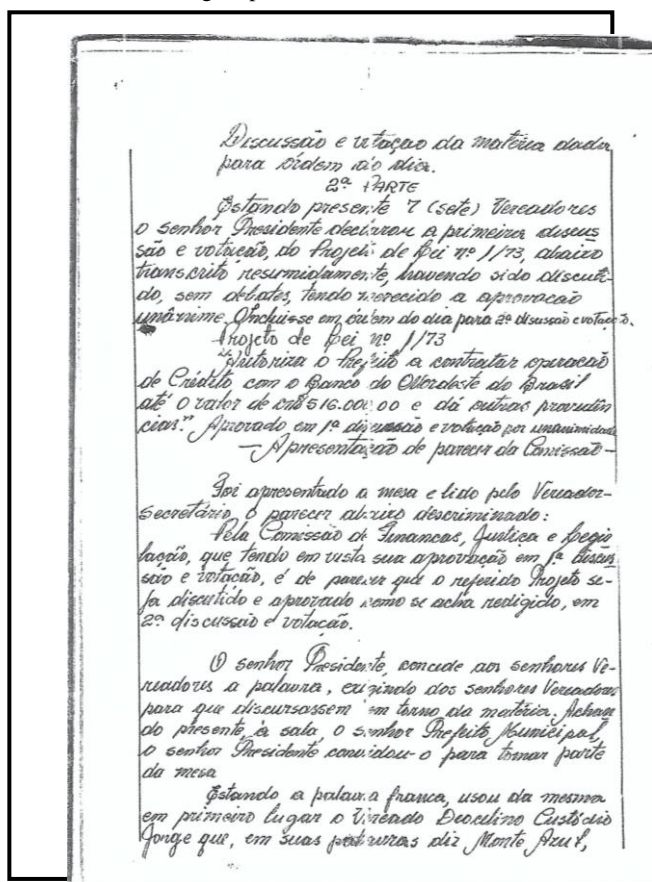 Discussão e votação da matéria dada
para órdem do dia.
2ª PARTE
Estando presente 7 (sete) Vereadores
o senhor Presidente declarou a primeira discus
são e votação, do Projeto de Lei nº 1/73, abaixo
transcrito resumidamente, havendo sido discuti-
do, sem debates, tendo merecido a aprovação
unânime. Incluisse em órdem do dia para 2ª discussão e votação.
Projeto de Lei nº 1/73
"Autoriza o Prefeito a contratar operação
de Crédito com o Banco do Nordeste do Brasil
até o valor de cr$ 516.000,00 e dá outras providên
cias". Aprovado em 1ª discussão e votação por unanimidade
— Apresentação de parecer da Comissão —
Foi apresentado a mesa e lido pelo Vereador-
Secretário, o parecer abaixo descriminado:
Pela Comissão de Finanças, Justiça e Legis
lação, que tendo em vista sua aprovação em 1ª discus
são e votação, é de parecer que o referido Projeto se-
ja discutido e aprovado como se acha redigido, em
2ª discussão e votação.
O senhor Presidente, concede aos senhores Ve-
readores a palavra, exigindo dos senhores Vereadores
para que discursassem em torno da matéria. Achan
do presente, à sala, o senhor Prefeito Municipal,
o senhor Presidente convidou-o para tomar parte
da mesa
Estando a palavra franca, usou da mesma
em primeiro lugar o Vereado Deoclino Custódio
Jorge que, em suas palavras diz Monte Azul,